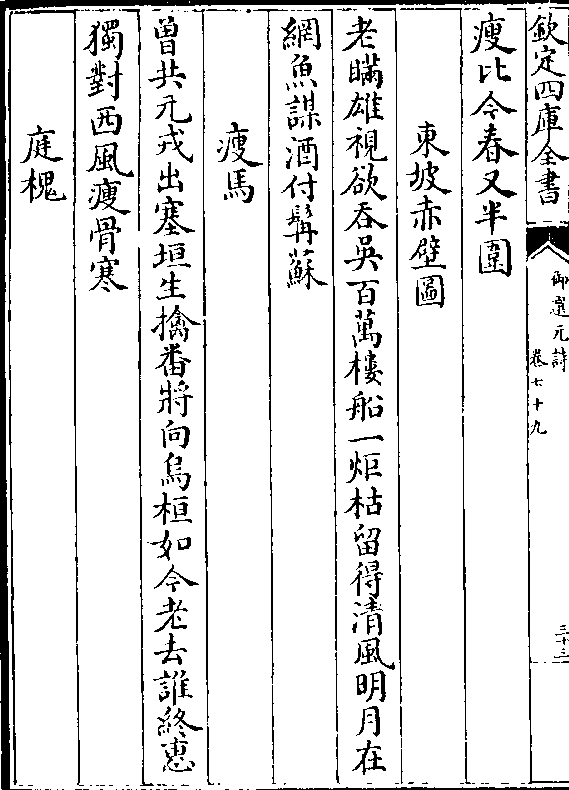 欽定四庫全書
御選元詩
卷七十九
三十三
瘦比今春又半圍
東坡赤壁圖
老瞞雄視欲吞吳百萬樓船一炬枯留得清風明月在
網魚謀酒付髯蘇
瘦馬
曽共元戎出塞垣生擒番將向烏桓如今老去誰終惠
獨對西風瘦骨寒
庭槐